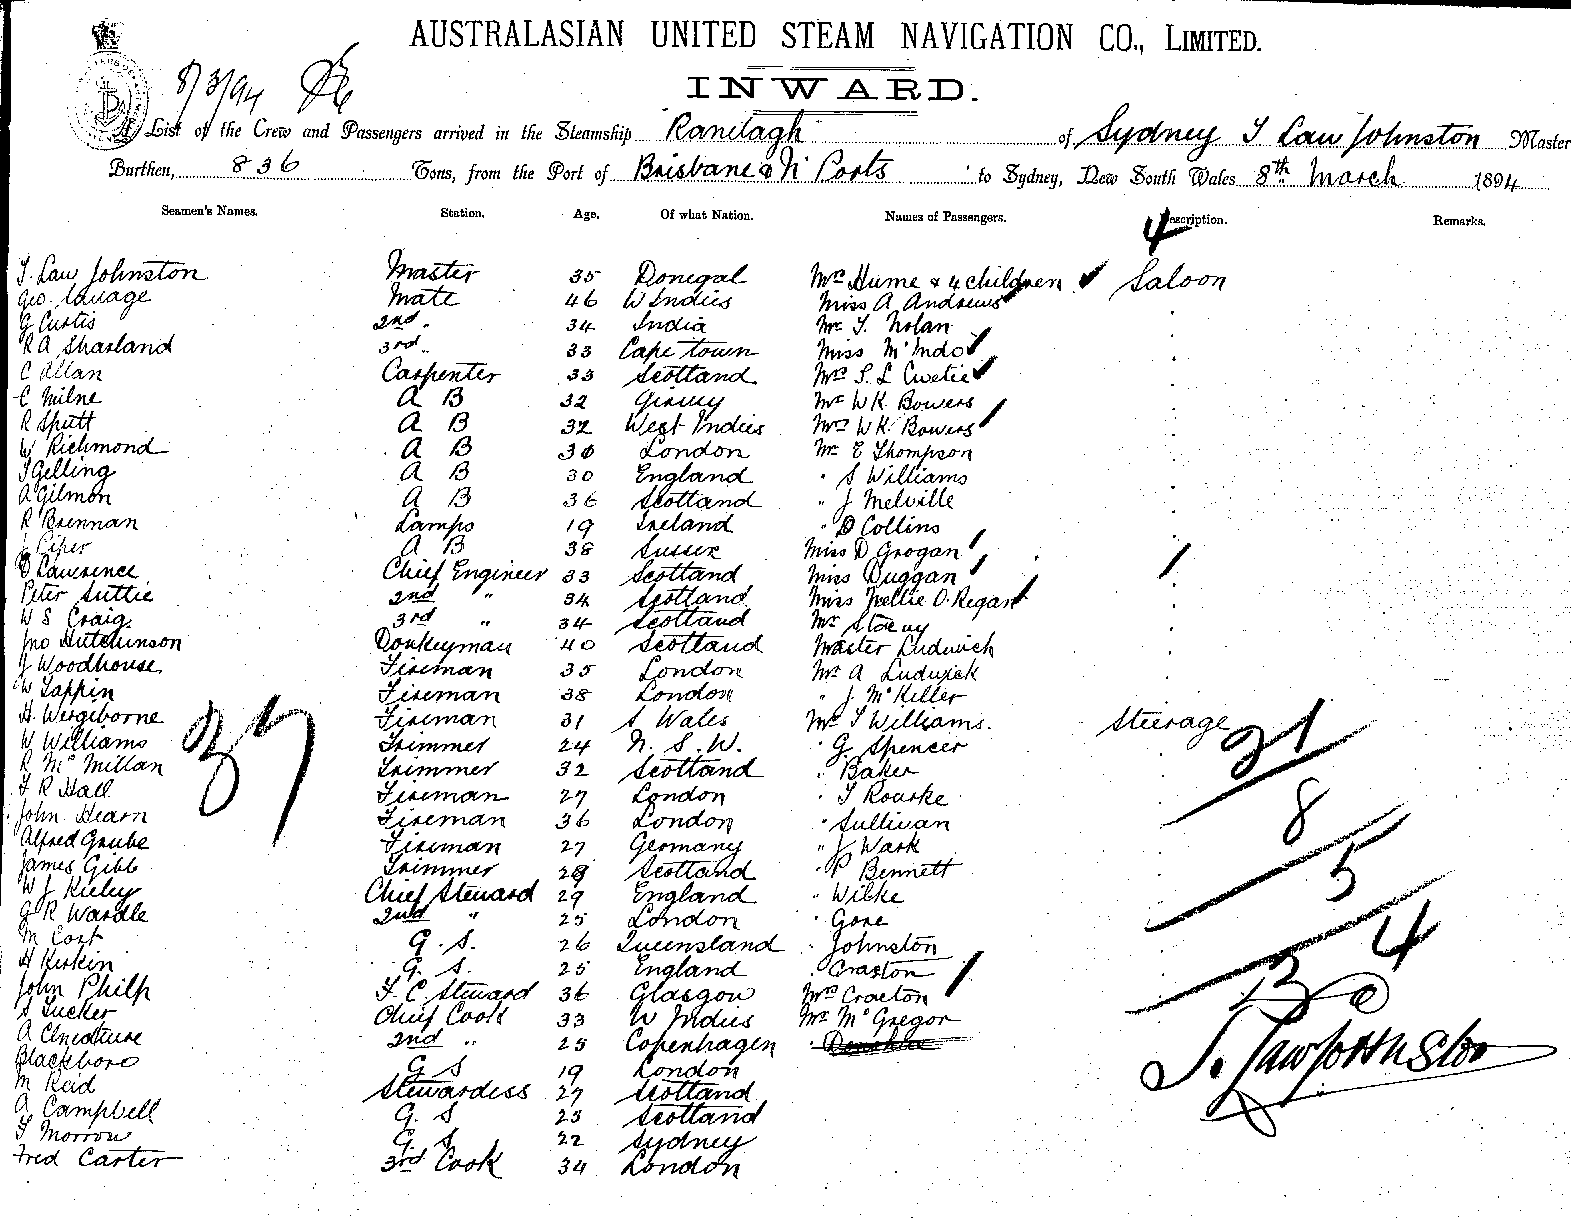 AUSTRALASIAN UNITED STEAM NAVIGATION CO., LIMITED.
8/3/94
INWARD.
A List of the Crew and Passengers arrived in the Steamship Ranelagh of Sydney T Law Johnston Master
Burthen, 836 Tons, from the Port of Brisbane & Nn Ports to Sydney, New South Wales 8th March 1894
Seamen's Names. Station. Age. Of what Nation. Names of Passengers. Description. Remarks.
4
T. Law Johnston Master 35 Donegal Mrs Hume & 4 children Saloon
Geo. Savage Mate 46 W Indies Miss A Andrews
G Curtis 2nd " 34 India Mr T. Nolan
R A Sharland 3rd " 33 Cape town Miss McIndo
C Allan Carpenter 33 Scotland Mrs S. L
C Milne A B 32 Mr W K Bowers
R Sputt A B 32 West Indies Mrs W K Bowers
W Richmond A B 30 London Mr E Thompson
T Gelling A B 30 England " S Williams
A Gilmon A B 36 Scotland " J Melville
R Brennan Lamps 19 Ireland " D Collins
J Piper A B 38 Sussex Miss D Grogan
D Lawrence Chief Engineer 33 Scotland Miss Duggan
Peter Suttie 2nd " 34 Scotland Miss Nellie O.Regan
W S Craig 3rd " 34 Scotland Mr
Jno Hutchinson Donkeyman 40 Scotland Master Ludwick
J Woodhouse Fireman 35 London Mr A Ludwick
W Tappin Fireman 38 London " J. McKiller
H. Wergiborne Fireman 31 S Wales Mr T Williams. Steerage
W Williams Trimmer 24 N. S. W. " G Spencer
R McMillan Trimmer 32 Scotland " Baker
F R Hall Fireman 27 London " T Rourke
John Hearn Fireman 36 London " Sullivan
Alfred Grube Fireman 27 Germany " J Wark
James Gibb Trimmer 28 Scotland " P Bennett
W J Kieley Chief Steward 29 England " Wilke
G R Wardle 2nd " 25 London " Gore
M Cort G. S. 26 Queensland " Johnston
H Kirkin G. S. 25 England " Craston
John Philp F. C Steward 36 Glasgow Mrs Craeton
S Tucker Chief Cook 33 W Indies Mr McGregor
A 2nd " 25 Copenhagen
Blackboro G S 19 London
M Reid Stewardess 27 Scotland
A Campbell G. S 23 Scotland
T Morrow G. S 22 Sydney
Fred Carter 3rd Cook 34 London
37
21
8
5
4
T. Law Johnston